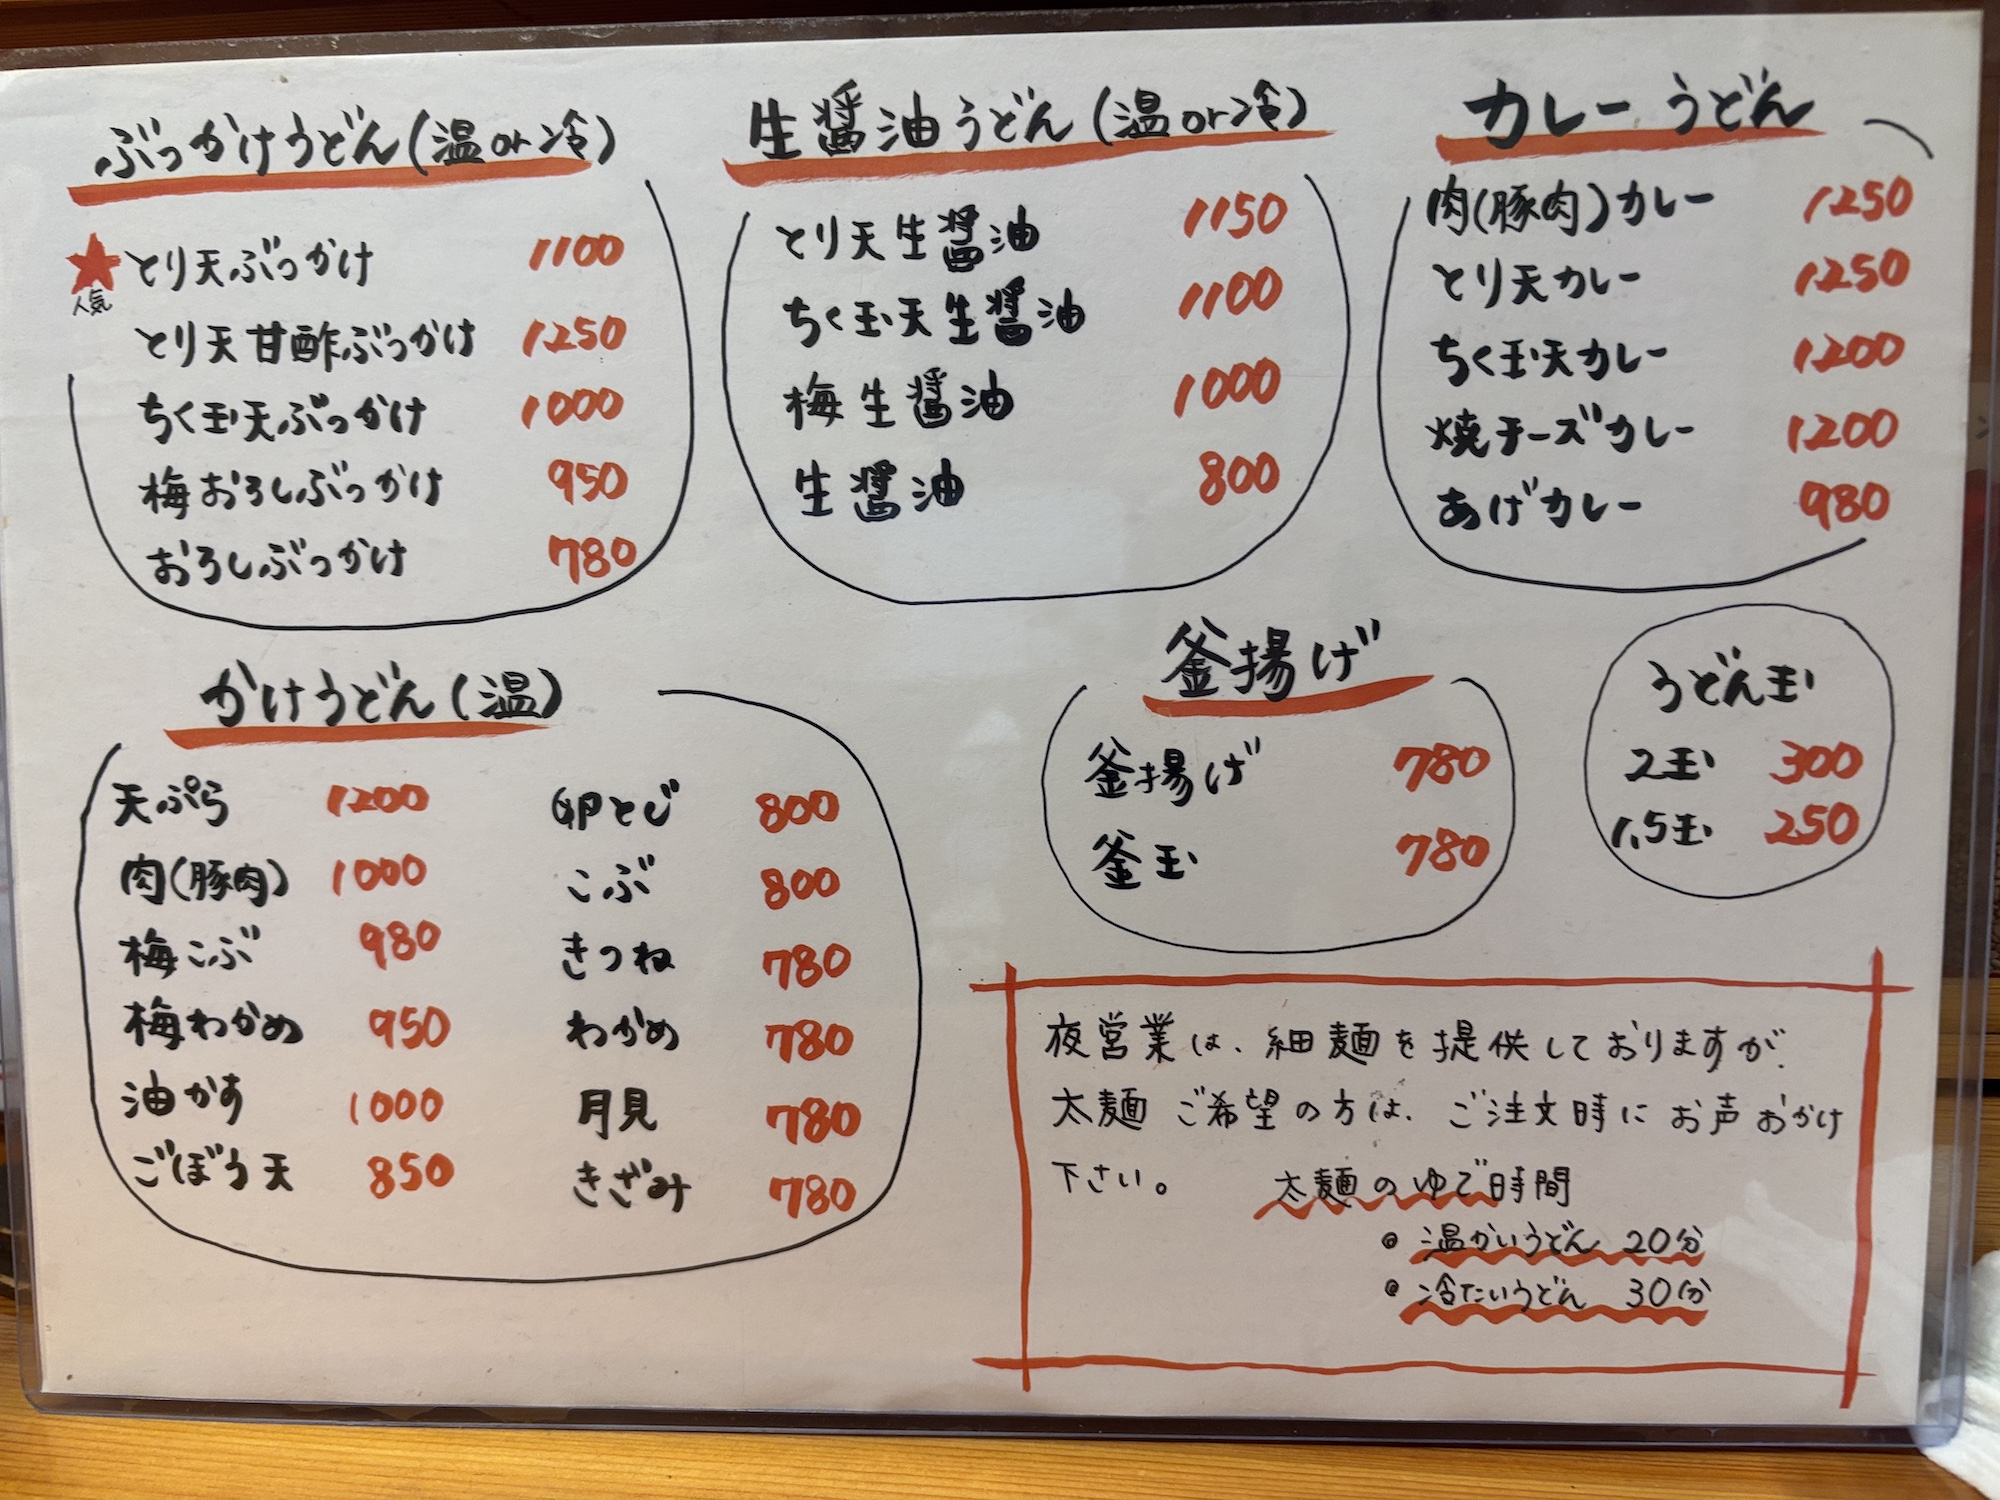 ぶっかけうどん(温or冷)
とり天ぶっかけ 1100
人気
とり天甘酢ぶっかけ 1250
ちく玉天ぶっかけ 1000
梅おろしぶっかけ 950
おろしぶっかけ 780
生醤油うどん(温or冷)
とり天生醤油 1150
ちく玉天生醤油 1100
梅生醤油 1000
生醤油 800
カレーうどん
肉(豚肉)カレー 1250
とり天カレー 1250
ちく玉天カレー 1200
焼チーズカレー 1200
あげカレー 980
かけうどん(温)
天ぷら 1200
肉(豚肉) 1000
梅こぶ 980
梅わかめ 950
油かす 1000
ごぼう天 850
卵とじ 800
こぶ 800
きつね 780
わかめ 780
月見 780
きざみ 780
釜揚げ
釜揚げ 780
釜玉 780
うどん玉
2玉 300
1,5玉 250
夜営業は、細麺を提供しておりますが、
太麺ご希望の方は、ご注文時にお声おかけ
下さい。 太麺のゆで時間
◎温かいうどん 20分
◎冷たいうどん 30分